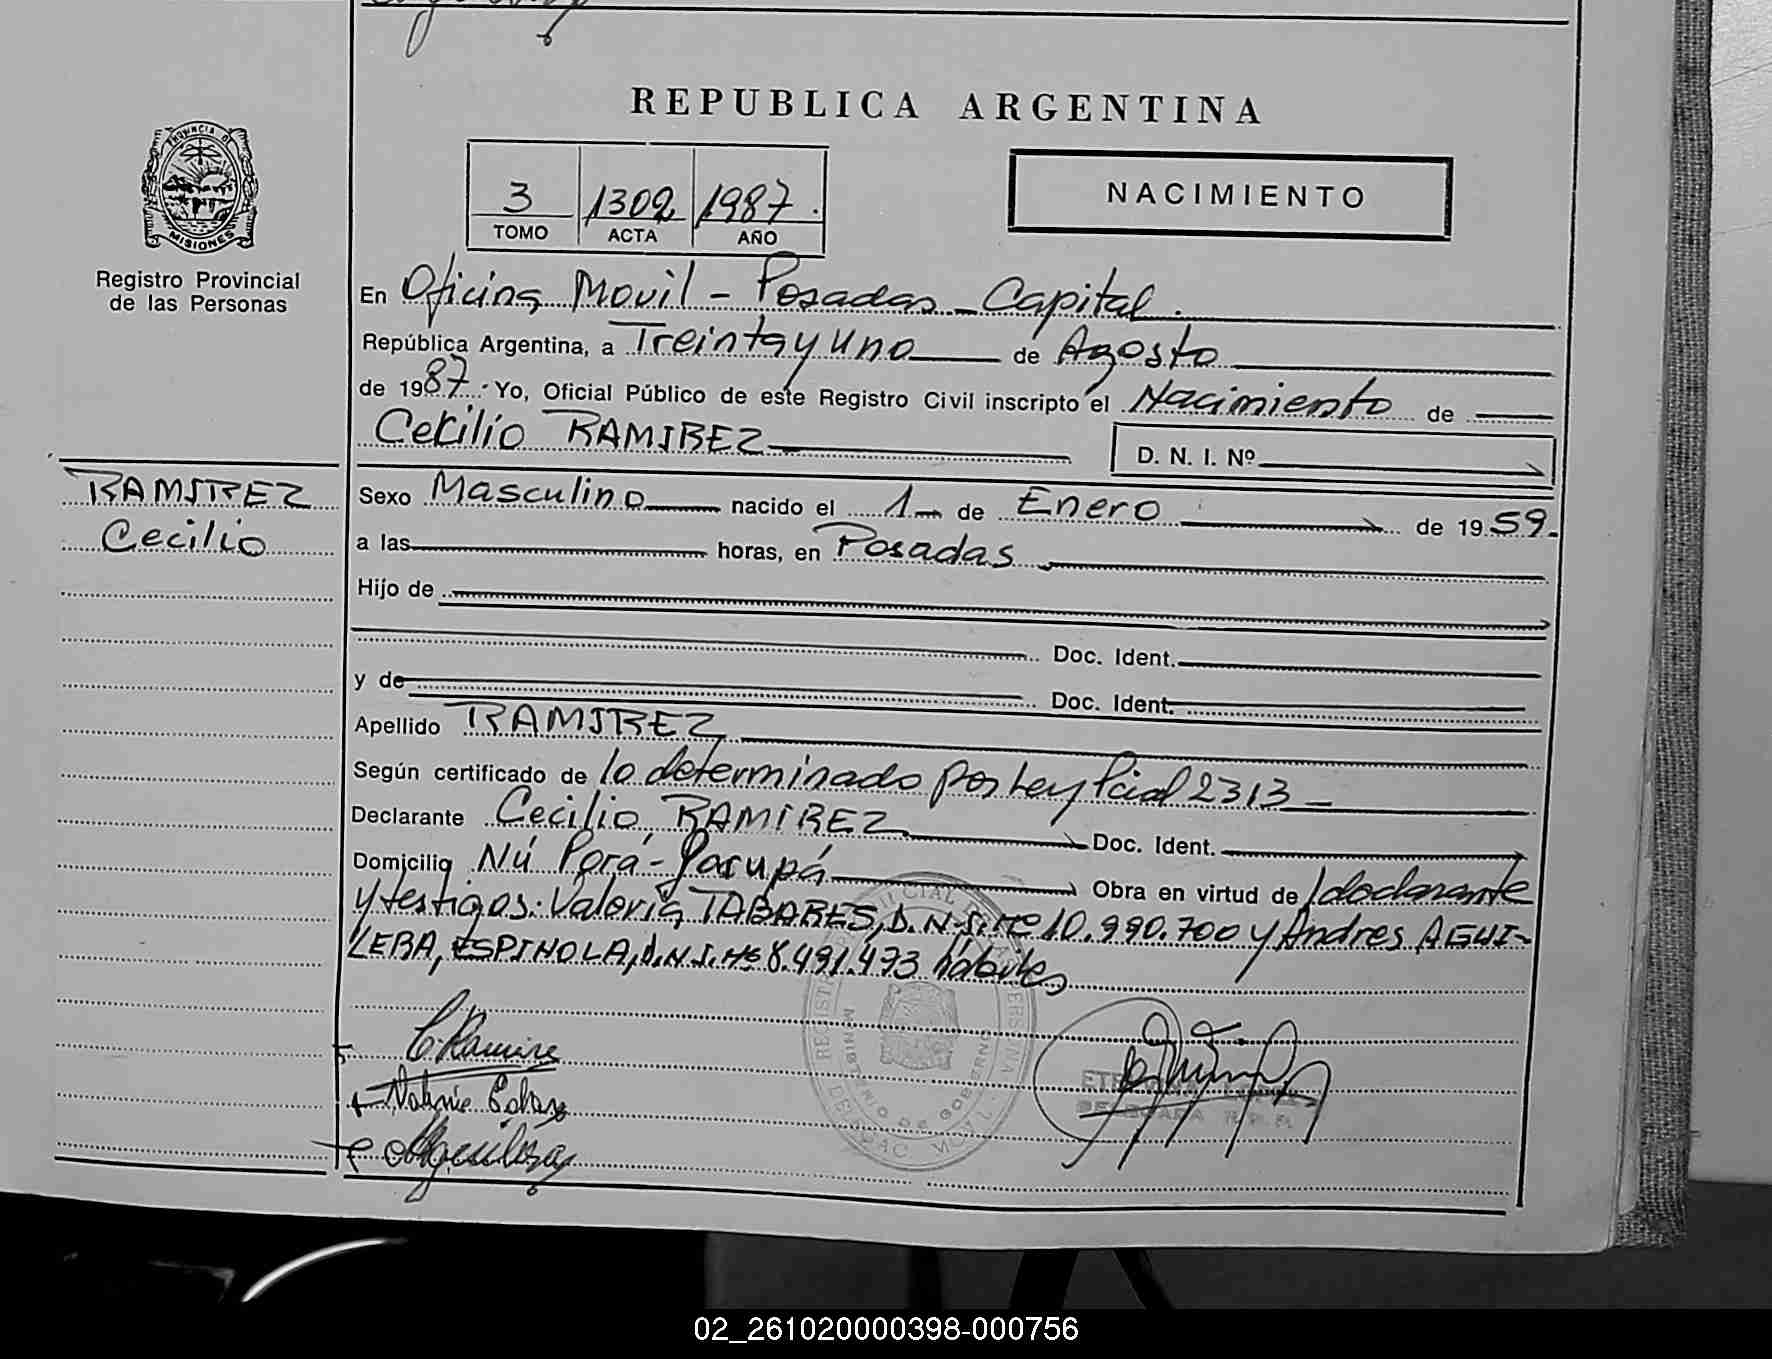 REPUBLICA ARGENTINA
PROVINCIA DE MISIONES
Registro Provincial
de las Personas
3 1302 1987.
TOMO ACTA AÑO
NACIMIENTO
En Oficina Movil - Posadas - Capital.
República Argentina, a Treinta y uno de Agosto
de 1987. Yo, Oficial Público de este Registro Civil inscripto el Nacimiento de
Cecilio RAMIREZ D. N. I. Nº
RAMIREZ
Cecilio
Sexo Masculino nacido el 1 de Enero de 1959.
a las horas, en Posadas
Hijo de
Doc. Ident.
y de Doc. Ident.
Apellido RAMIREZ
Según certificado de lo determinado por Ley Pcial 2313 -
Declarante Cecilio RAMIREZ Doc. Ident.
Domicilio Ñú Porá - Garupá Obra en virtud de / declarante
y testigos: Valeria TABARES, D.N.I. Nº 10.990.700 y Andres AGUI-
LERA, ESPINOLA, D.N.I. Nº 8.491.473 hábiles
C Ramire
Aguilera
MINISTERIO DE GOBIERNO
02_261020000398-000756